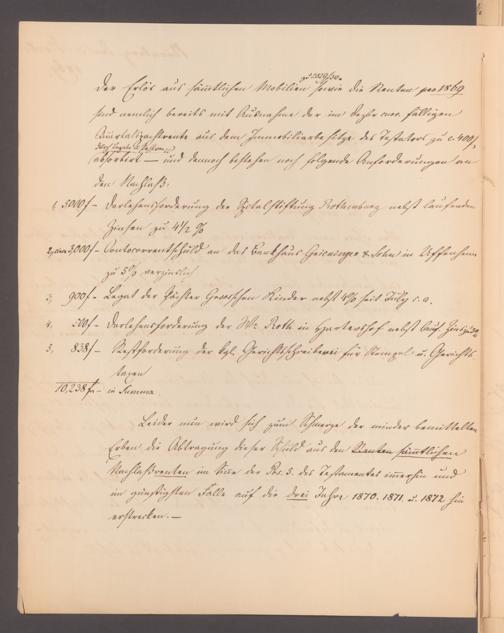 Der Erlös aus sämtlichen Mobilien sowie die Renten pro 1869
sind nemlich bereits mit Ausnahme der im Dezbr. curr. fälligen
Quartalzinsrente aus dem Immobiliarbesitze des Testators zu c. 400 f,
absorbirt — und dennoch bestehen noch folgende Anforderungen an
den Nachlaß:
1, 5000 f – Darlehensforderung der Spitalstiftung Rothenburg nebst laufenden
Zinsen zu 4 1/2 %
2, circa 3,000 f – Contocorrentschuld an das Bankhaus & Sohn in Uffenheim
zu 5 % verzinslich
3, 900 f – Legat der Kinder nebst 4 % seit July c. a.
4, 500 f – Darlehensforderung der Roth in Hartershof nebst
5, 838 f – Restforderung der kgl. Gerichtsschreiberei für Stempel- u. Gerichts-
taxen
10,238 f – in Summa.
Leider nun wird sich zum Schmerze der minder bemittelten
Erben die Abtragung dieser Schuld aus den Renten sämtlichen
Nachlaßrenten im Sinne der Pos. 5. des Testamentes immerhin und
im günstigsten Falle auf die drei Jahre 1870. 1871. u. 1872 hin
erstrecken. —